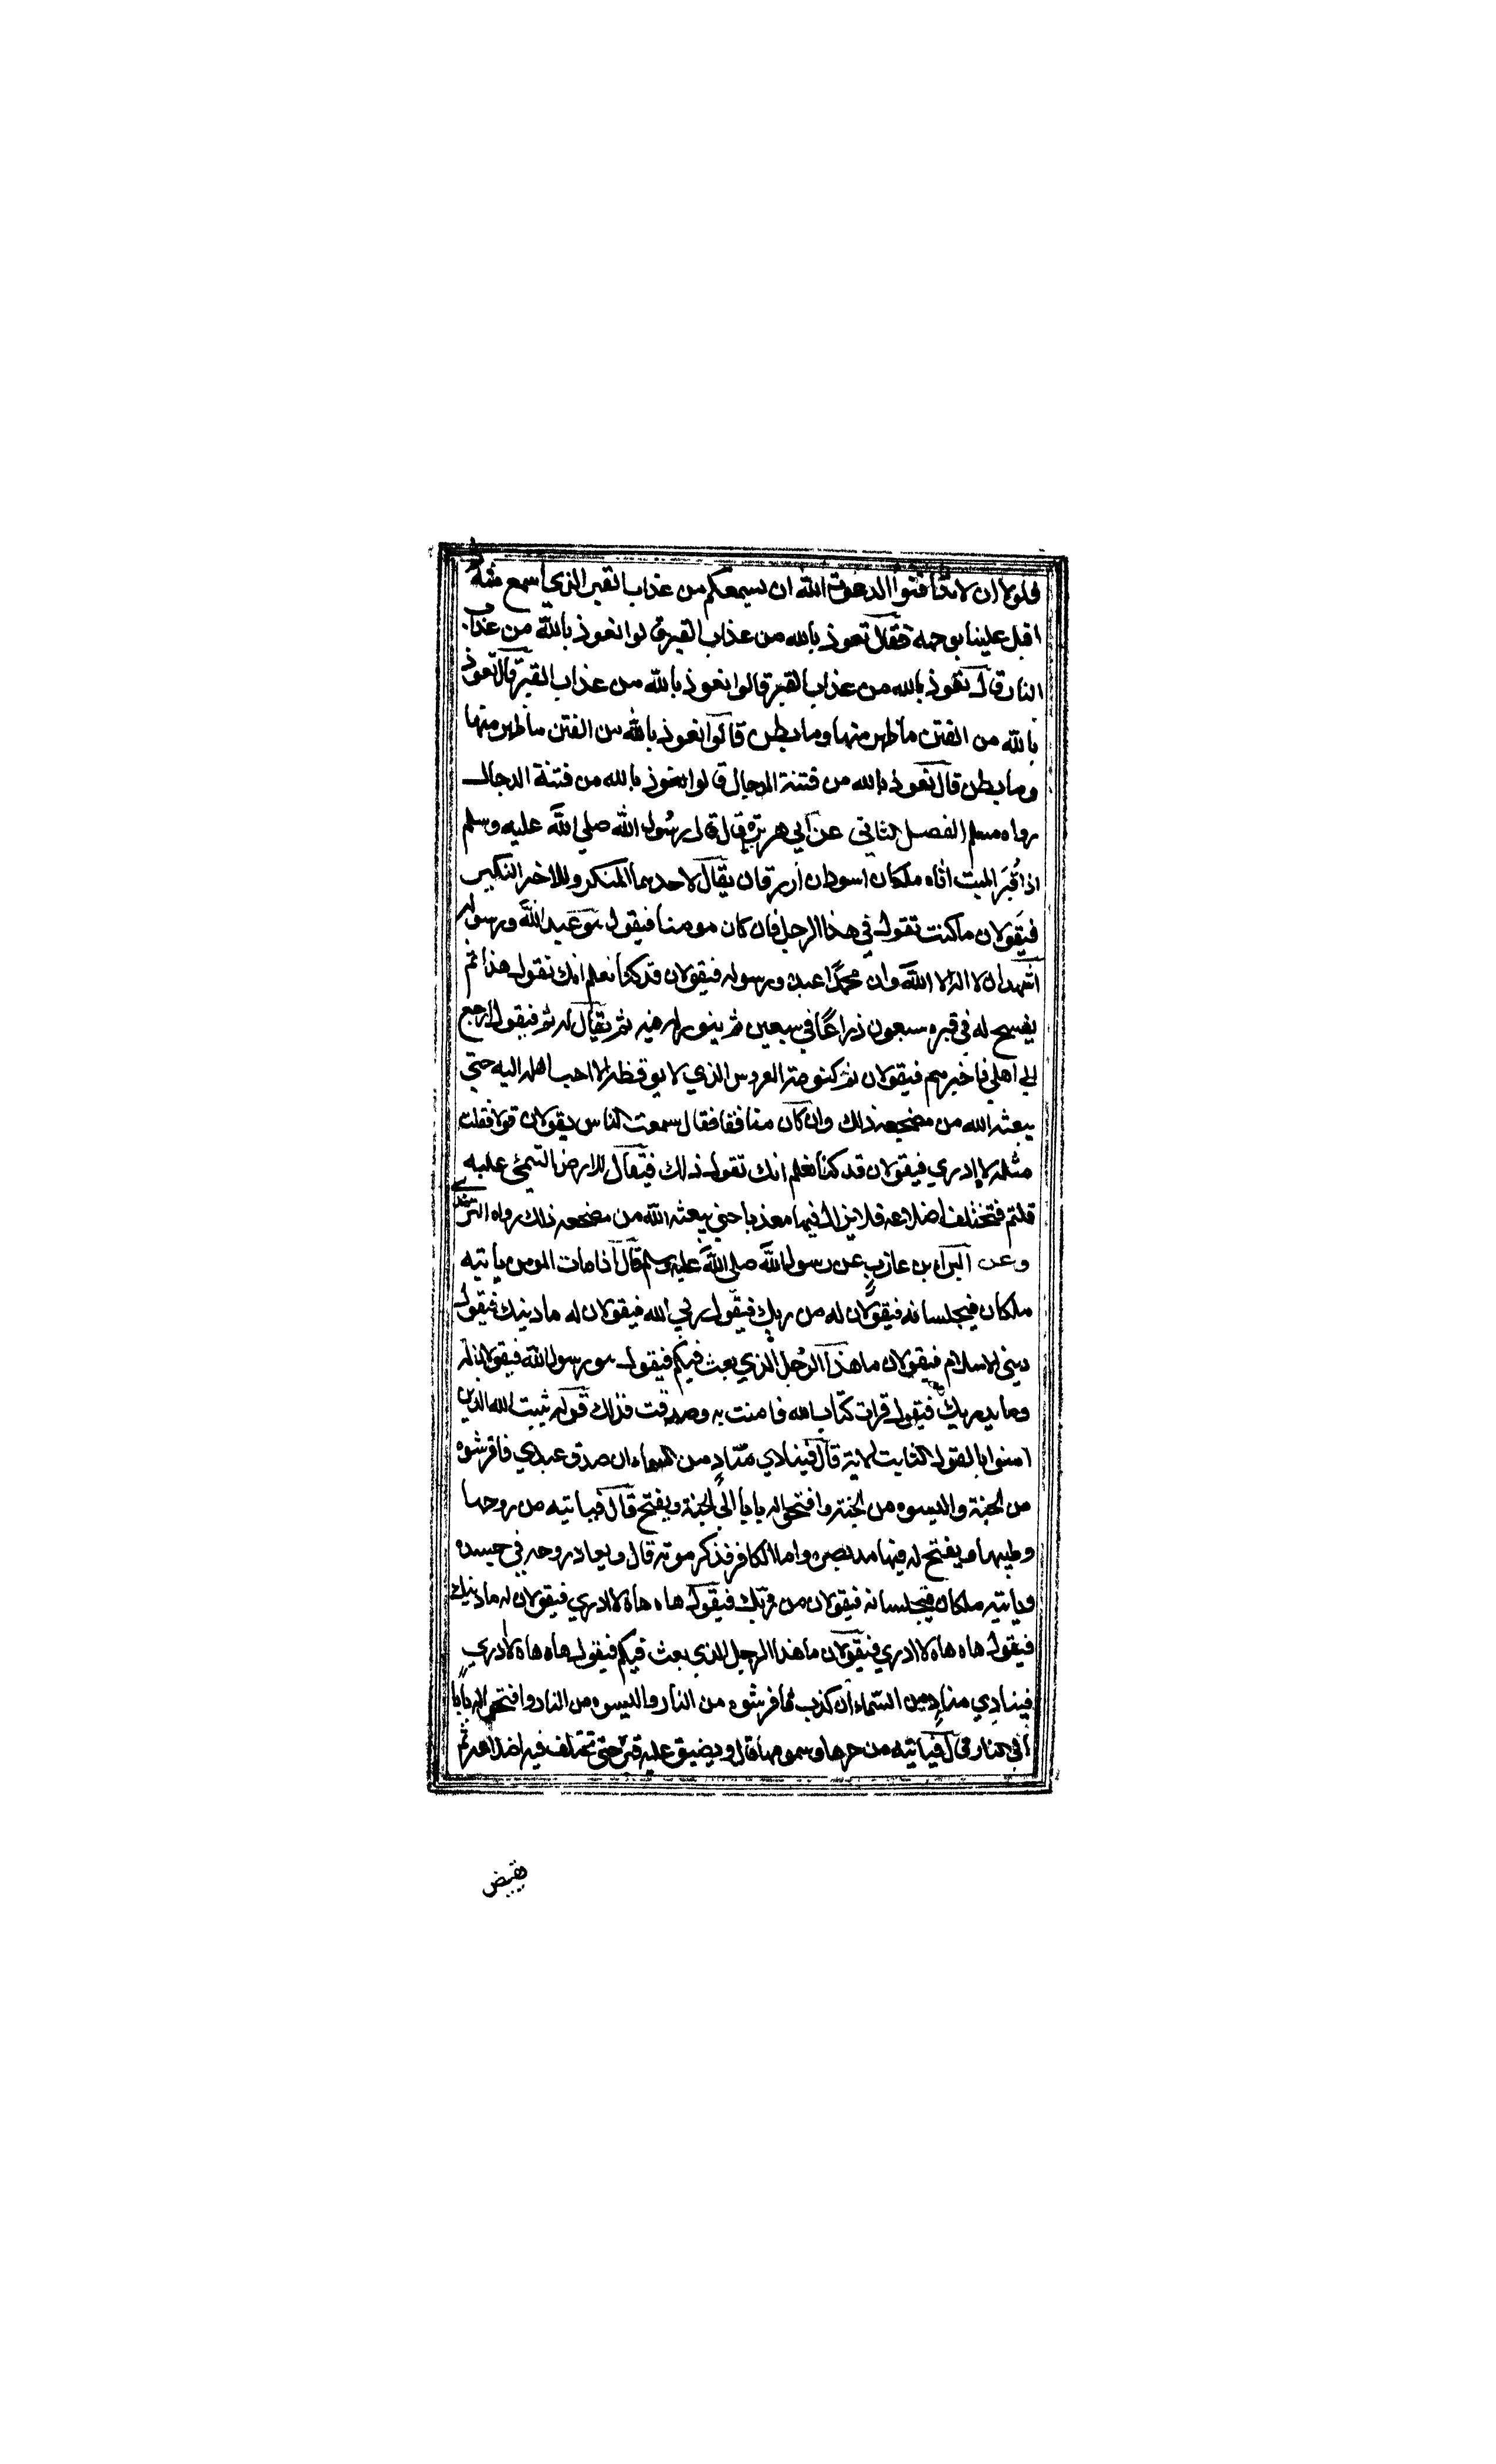 فلولا ان لا تدافنوا لدعوت الله ان يسمعكم من عذاب القبر الذي اسمع منه ثم
اقبل علينا بوجهه فقال تعوذ بالله من عذاب القبر قالوا نعوذ بالله من عذاب
النار قال تعوذ بالله من عذاب القبر قالوا نعوذ بالله من عذاب القبر قال تعوذ
بالله من الفتن ما ظهر منها وما بطن قالوا نعوذ بالله من الفتن ما ظهر منها
وما بطن قال تعوذ بالله من فتنة الدجال قالوا نعوذ بالله من فتنة الدجال
رواه مسلم الفصل الثاني عن ابي هريرة قال قال رسول الله صلي الله عليه وسلم
اذا قُبرَ الميت اتاه ملكان اسودان ازرقان يقال لاحدهما المنكر وللاخر النكير
فيقولان ما كنت تقول في هذا الرجل فان كان مومنا فيقول هو عبد الله ورسوله
اشهد ان لا اله الا الله وان محمدًا عبده ورسوله فيقولان قد كنا نعلم انك تقول هذا ثم
يفسح له في قبره سبعون ذراعًا في سبعين ثم ينور له فيه ثم يقال له نم فيقول ارجع
الي اهلي فاخبرهم فيقولان نم كنومة العروس الذي لا يوقظه الا احب اهله اليه حتي
يبعثه الله من مضجعه ذلك وان كان منافقا فقال سمعت الناس يقولان قولا فقلت
مثله لا ادري فيقولان قد كنا نعلم انك تقول ذلك فيقال للارض التئمي عليه
فتختلف اضلاعه فلا يزال فيها معذبا حتي يبعثه الله من مضجعه ذلك رواه الترمذي
وعن البراء بن عازب عن رسول الله صلي الله عليه وسلم قال اذا مات المومن ياتيه
ملكان فيجلسانه فيقولان له من ربك فيقول ربي الله فيقولان له ما دينك فيقول
ديني الاسلام فيقولان ما هذا الرجل الذي بعث فيكم فيقول هو رسول الله فيقولان له
وما يدريك فيقول قرات كتاب الله فامنت به وصدقت فذلك قوله يثبت الله الذين
امنوا بالقول الثابت الاية قال فينادي منادٍ من السماء ان صدق عبدي فافرشوه
من الجنة والبسوه من الجنة وافتحوا له بابا الي الجنة ويفتح قال فياتيه من روحها
وطيبها ويفتح له فيها مد بصره واما الكافر فذكر موته قال ويعاد روحه في جسده
وياتيه ملكان فيجلسانه فيقولان من ربك فيقول هاه هاه لا ادري فيقولان له ما دينك
فيقول هاه هاه لا ادري فيقولان ما هذا الرجل الذي بعث فيكم فيقول هاه هاه لا ادري
فينادي منادٍ من السماء ان كذب فافرشوه من النار والبسوه من النار وافتحوا له بابًا
الي النار قال فياتيه من حرها وسمومها قال ويضيق عليه قبره حتي تختلف فيه اضلاعه ثم
يقيض